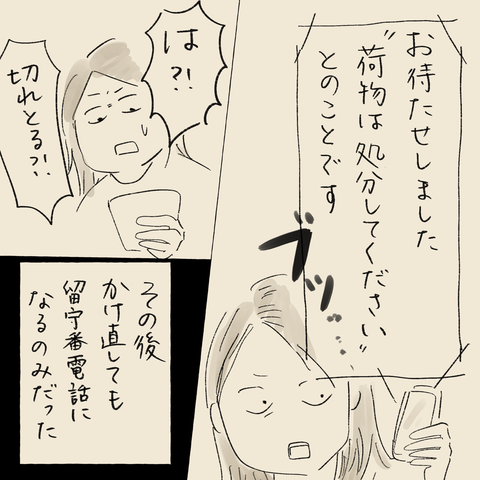 お待たせしました
"荷物は処分してください"
とのことです
ブツッ…
は?!
切れとる?!
その後
かけ直しても
留守番電話に
なるのみだった